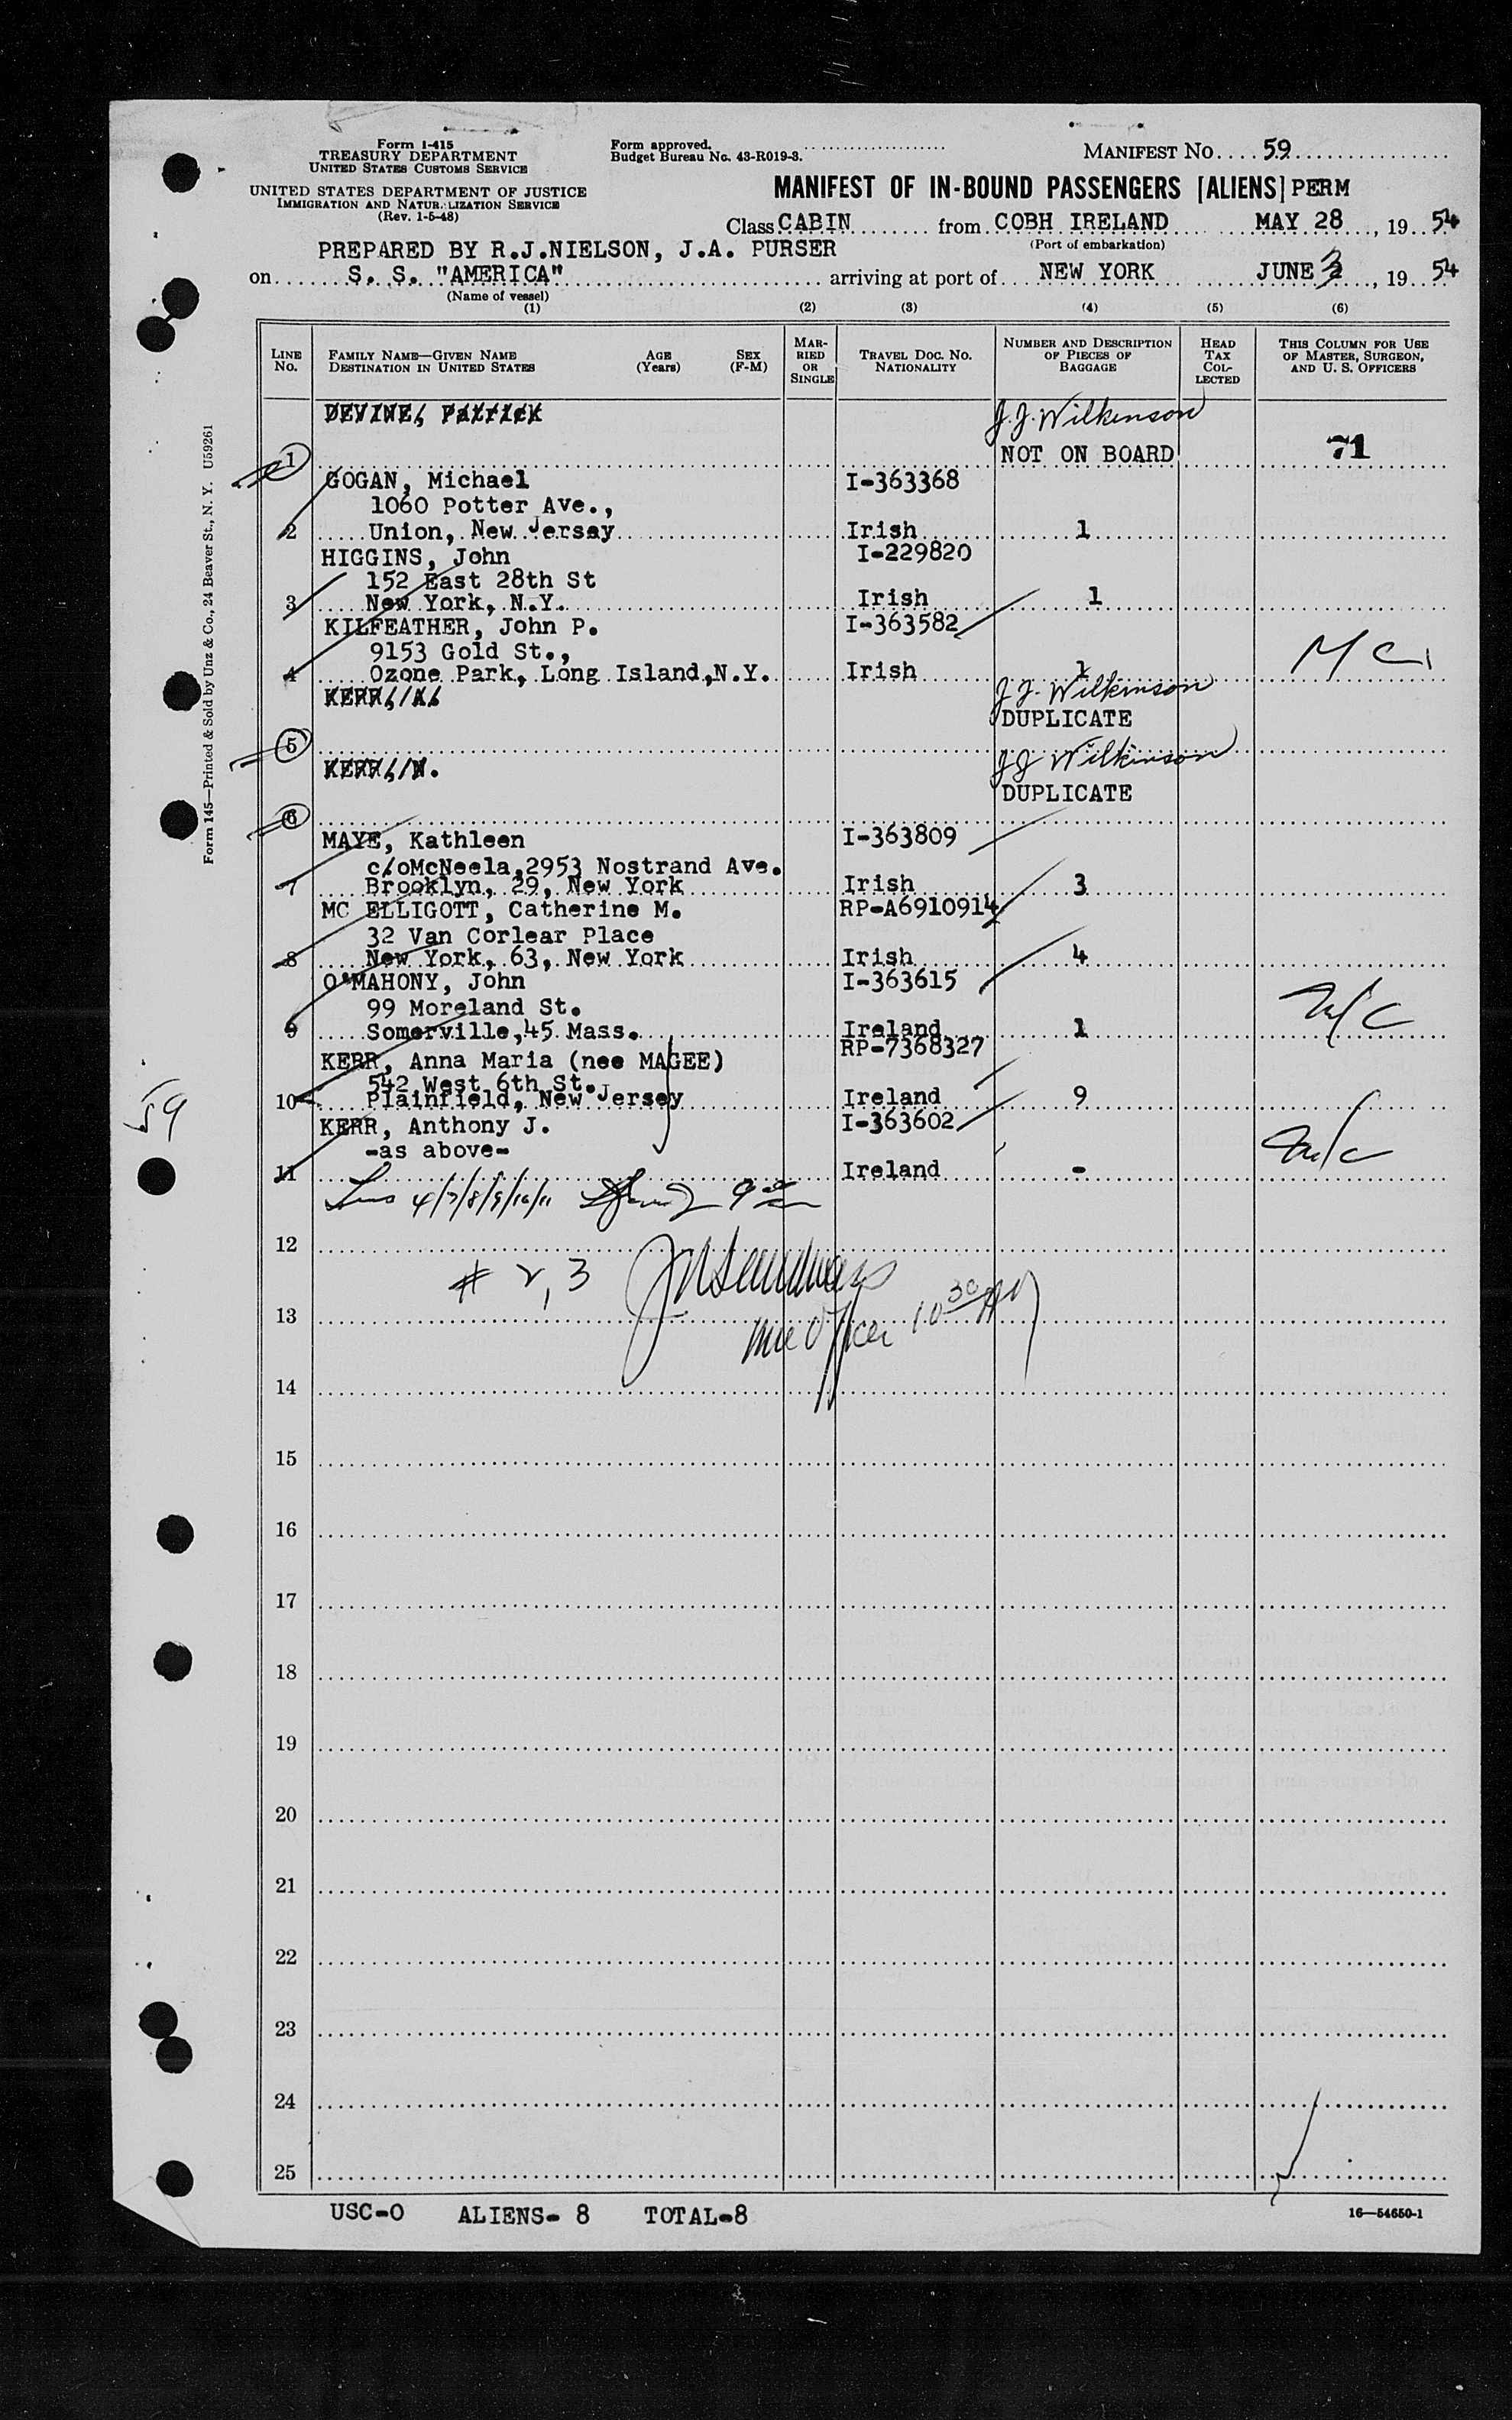 Form I-415
TREASURY DEPARTMENT
UNITED STATES CUSTOMS SERVICE
UNITED STATES DEPARTMENT OF JUSTICE
IMMIGRATION AND NATURALIZATION SERVICE
(Rev. 1-5-48)
Form approved.
Budget Bureau No. 43-R019-3.
MANIFEST No. 59
MANIFEST OF IN-BOUND PASSENGERS [ALIENS] PERM
Class CABIN from COBH IRELAND MAY 28, 1954
(Port of embarkation)
PREPARED BY R.J.NIELSON, J.A. PURSER
on S. S. "AMERICA" arriving at port of NEW YORK JUNE 3, 1954
(Name of vessel)
(1) (2) (3) (4) (5) (6)
LINE No.
FAMILY NAME—GIVEN NAME AGE SEX
DESTINATION IN UNITED STATES (Years) (F-M)
MARRIED OR SINGLE
TRAVEL DOC. NO. NATIONALITY
NUMBER AND DESCRIPTION OF PIECES OF BAGGAGE
HEAD TAX COLLECTED
THIS COLUMN FOR USE OF MASTER, SURGEON, AND U. S. OFFICERS
DEVINE, Patrick J.J. Wilkinson
1 NOT ON BOARD 71
GOGAN, Michael I-363368
1060 Potter Ave.,
2 Union, New Jersey Irish 1
HIGGINS, John I-229820
152 East 28th St
3 New York, N.Y. Irish 1
KILFEATHER, John P. I-363582
9153 Gold St.,
4 Ozone Park, Long Island,N.Y. Irish 1 MC
KERR, A. J.J. Wilkinson
DUPLICATE
5
KERR, N. J J Wilkinson
DUPLICATE
6
MAYE, Kathleen I-363809
c/oMcNeela,2953 Nostrand Ave.
7 Brooklyn, 29, New York Irish 3
MC ELLIGOTT, Catherine M. RP-A6910914
32 Van Corlear Place
8 New York, 63, New York Irish 4
O'MAHONY, John I-363615
99 Moreland St.
9 Somerville,45 Mass. Ireland 1 M/C
KERR, Anna Maria (nee MAGEE) RP-7368327
542 West 6th St.
10 Plainfield, New Jersey Ireland 9
KERR, Anthony J. I-363602
-as above-
11 Ireland - M/C
4/7/8/9/10/11
12
# 2, 3
13 10 30 AM
14
15
16
17
18
19
20
21
22
23
24
25
USC-0 ALIENS- 8 TOTAL-8
16—54650-1
Form 145—Printed & Sold by Unz & Co., 24 Beaver St., N. Y. U59261
59